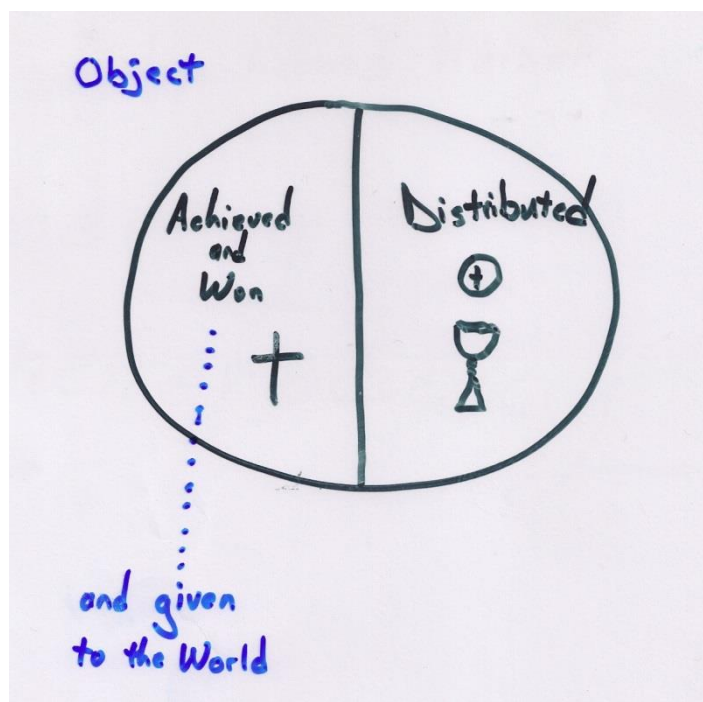 Object
Achieved
and
Won
Distributed
and given
to the World